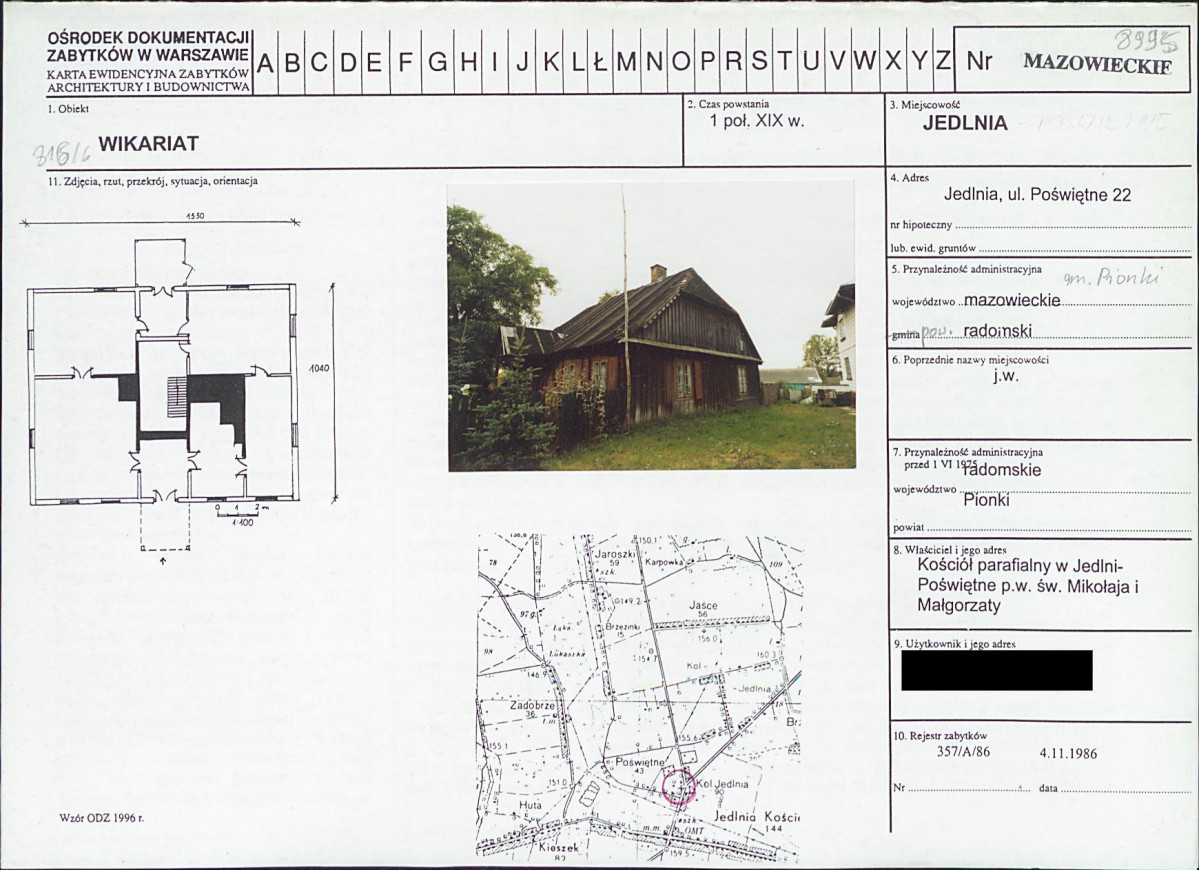 OŚRODEK DOKUMENTACJI
ZABYTKÓW W WARSZAWIE
KARTA EWIDENCYJNA ZABYTKÓW
ARCHITEKTURY I BUDOWNICTWA
A B C D E F G H I J K L Ł M N O P R S T U V W X Y Z
Nr
8995
MAZOWIECKIE
1. Obiekt
WIKARIAT
2. Czas powstania
1 poł. XIX w.
3. Miejscowość
JEDLNIA
11. Zdjęcia, rzut, przekrój, sytuacja, orientacja
1530
1040
0 1 2 m
1:100
4. Adres
Jedlnia, ul. Poświętne 22
nr hipoteczny
lub. ewid. gruntów
5. Przynależność administracyjna
gm. Pionki
województwo mazowieckie
gmina pow. radomski
6. Poprzednie nazwy miejscowości
j.w.
7. Przynależność administracyjna
przed 1 VI 1975
radomskie
województwo
Pionki
powiat
8. Właściciel i jego adres
Kościół parafialny w Jedlni-
Poświętne p.w. św. Mikołaja i
Małgorzaty
9. Użytkownik i jego adres
10. Rejestr zabytków
357/A/86 4.11.1986
Nr data
150.1
Jaroszki
59
szk.
Karpówka
109
78
149.2
97 g.
Jaśce
56
Brzezinki
15
156.0
Łąka
Łukaszka
98
160.3
Kol.-
-Jedlnia
146.9
Zadobrze
36
155.1
155.6
Poświętne
43
151.0
Kol Jedlnia
90
Huta
szk
Jedlnia Kości
144
m.m.
OMT
Kieszek
87
159.5
Wzór ODZ 1996 r.